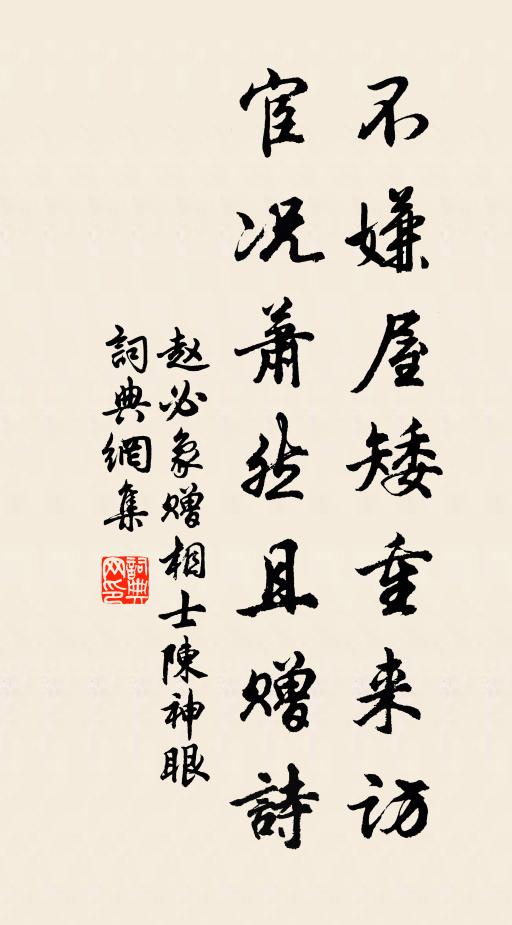 不嫌屋矮重来访
宦况萧然且赠詩
赵必象赠相士陳神眼
詞典網集
詞典网印